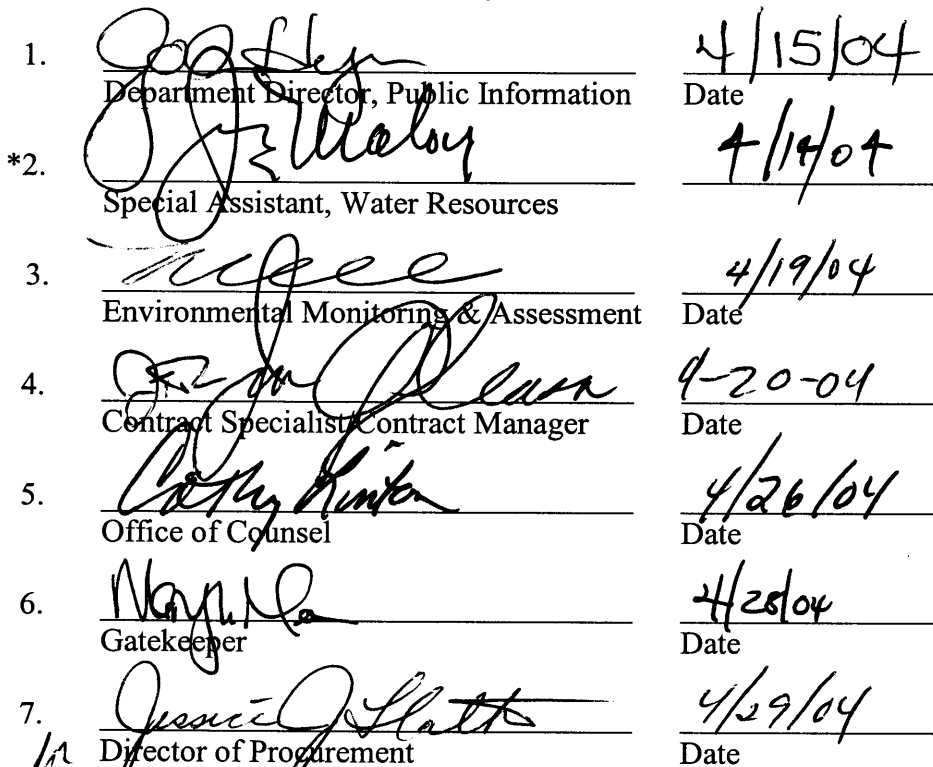 1. 4/15/04
Department Director, Public Information Date
*2. Maloy 4/14/04
Special Assistant, Water Resources
3. 4/19/04
Environmental Monitoring & Assessment Date
4. 4-20-04
Contract Specialist/Contract Manager Date
5. Cathy Linton 4/26/04
Office of Counsel Date
6. 4/28/04
Gatekeeper Date
7. Jessie J. 4/29/04
Director of Procurement Date